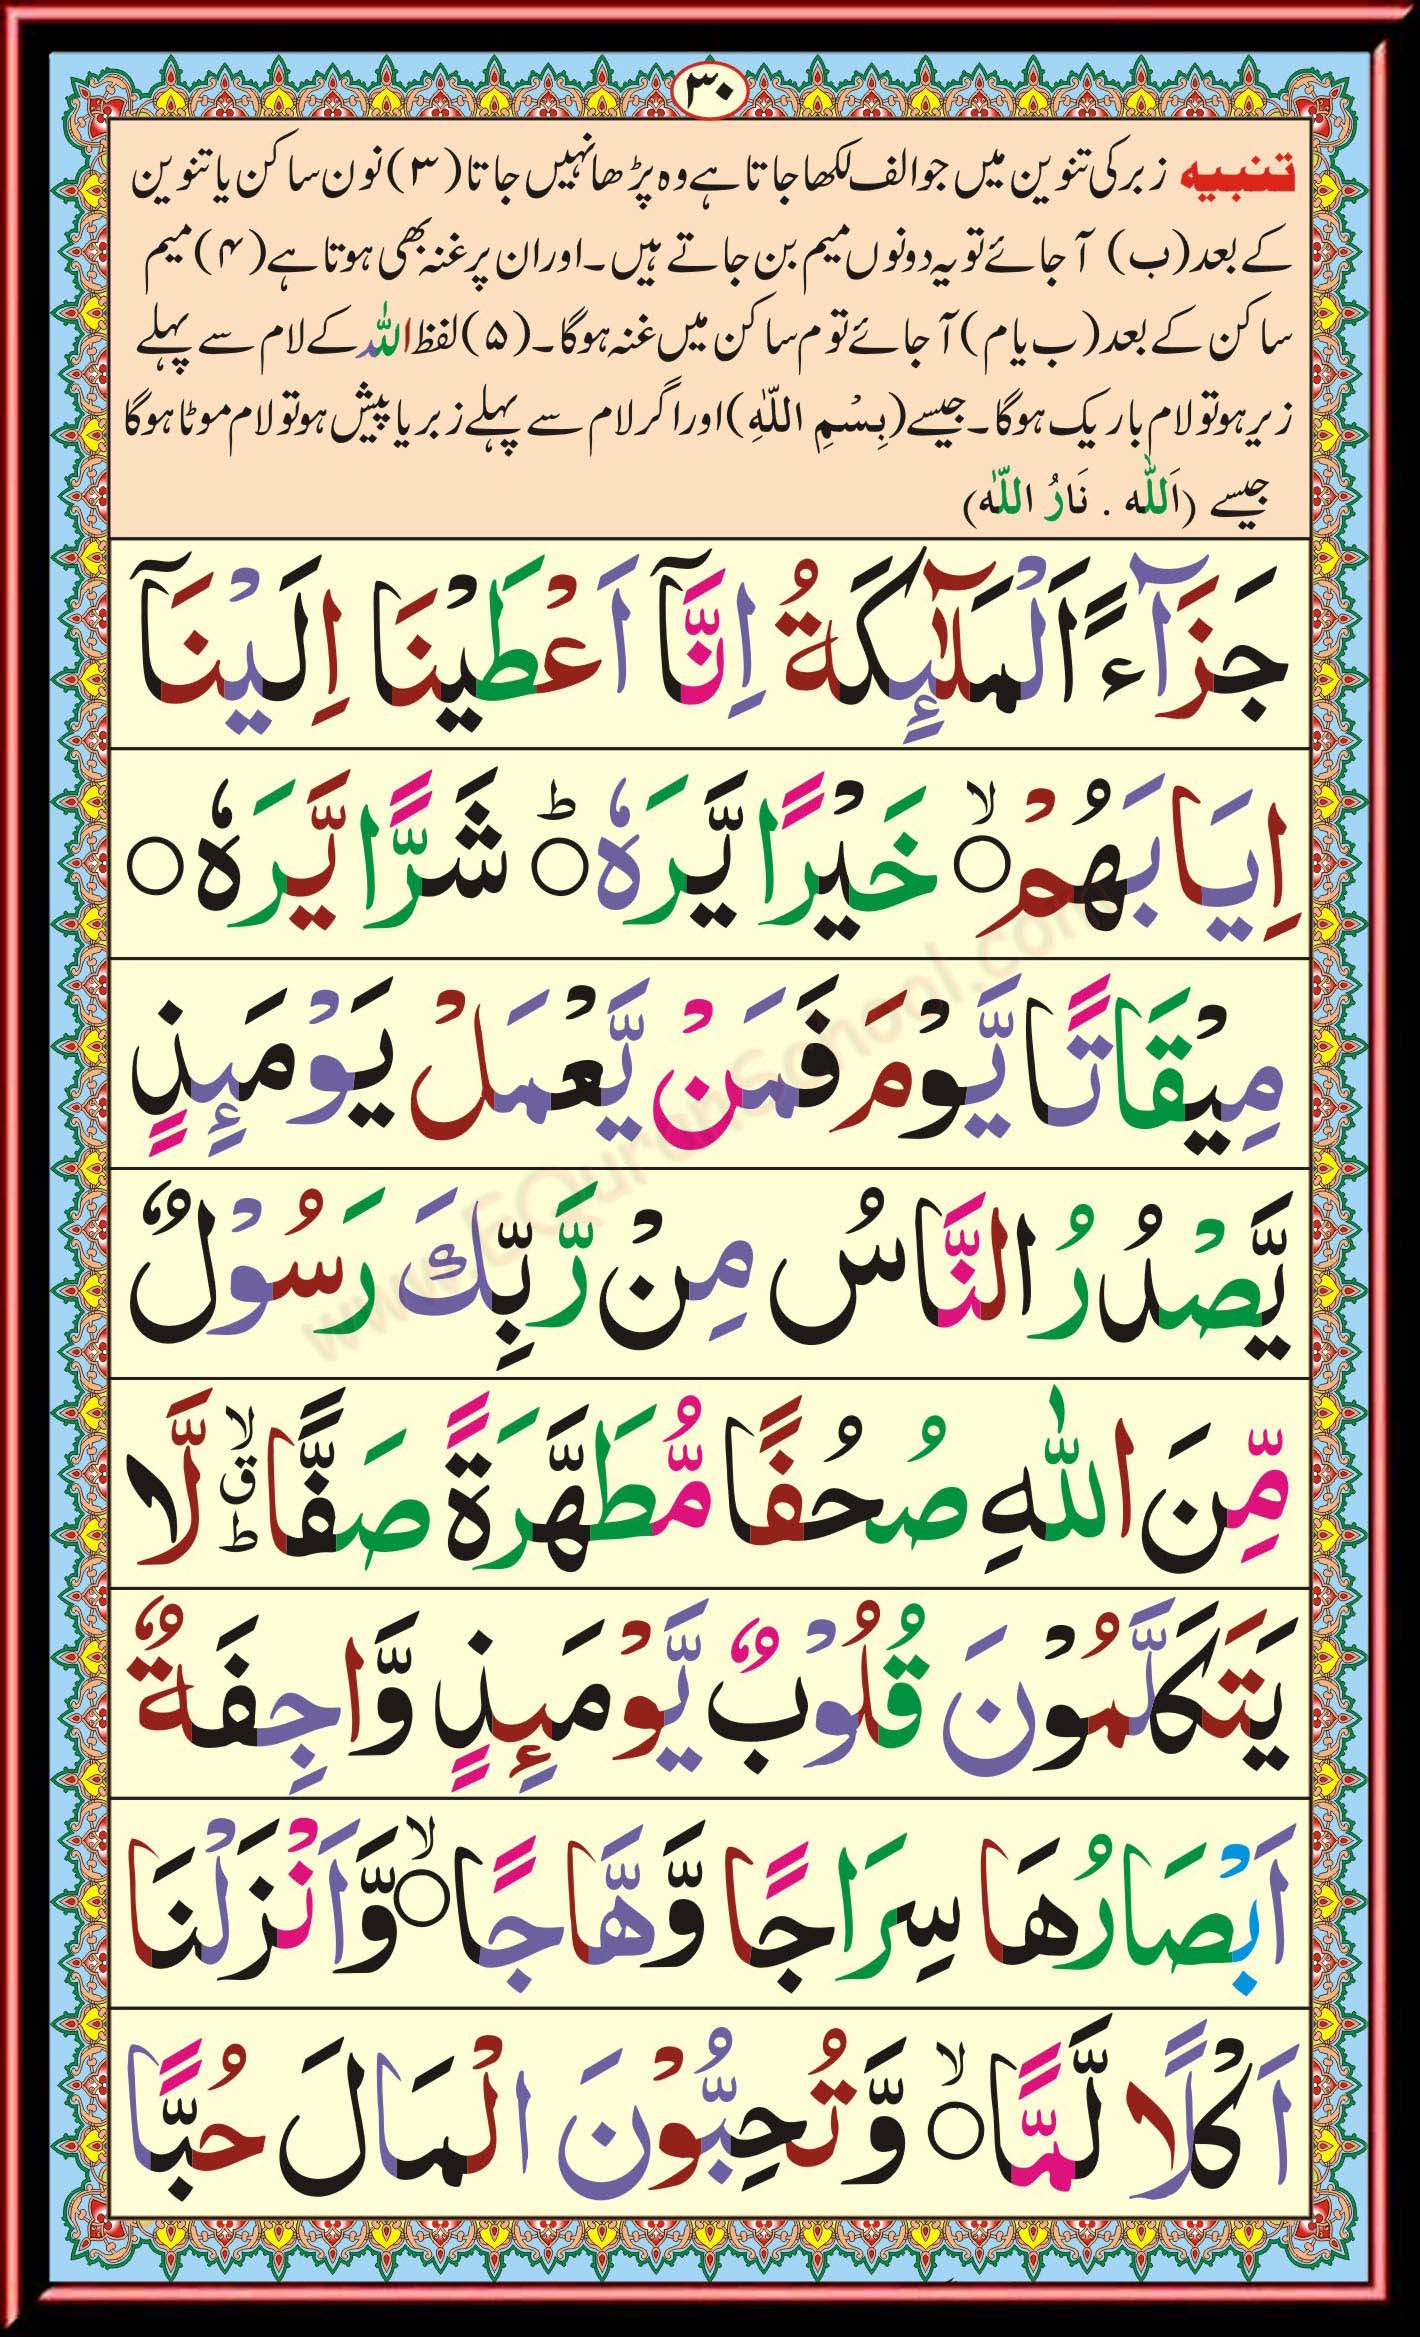 ۳۰
تنبیہ زبر کی تنوین میں جو الف لکھا جاتا ہے وہ پڑھا نہیں جاتا (۳) نون ساکن یا تنوین
کے بعد (ب) آ جائے تو یہ دونوں میم بن جاتے ہیں۔ اور ان پر غنہ بھی ہوتا ہے (۴) میم
ساکن کے بعد (ب یا م) آ جائے تو م ساکن میں غنہ ہوگا۔ (۵) لفظ اللہ کے لام سے پہلے
زیر ہو تو لام باریک ہوگا۔ جیسے (بِسْمِ اللّٰہِ) اور اگر لام سے پہلے زبر یا پیش ہو تو لام موٹا ہوگا
جیسے (اَللّٰه . نَارُ اللّٰه)
جَزَآءً اَلْمَلٰٓئِكَةُ اِنَّآ اَعْطَيْنَا اِلَيْنَآ
اِيَابَهُمْ ۙ خَيْرًا يَّرَهٗ ؕ شَرًّا يَّرَهٗ
مِيْقَاتًا يَّوْمَ فَمَنْ يَّعْمَلْ يَوْمَئِذٍ
يَّصْدُرُ النَّاسُ مِنْ رَّبِّكَ رَسُوْلٌ
مِّنَ اللّٰهِ صُحُفًا مُّطَهَّرَةً صَفًّا ۙ ق ط لَّا
يَتَكَلَّمُوْنَ قُلُوْبٌ يَّوْمَئِذٍ وَّاجِفَةٌ
اَبْصَارُهَا سِرَاجًا وَّهَّاجًا ۙ وَّاَنْزَلْنَا
اَكْلًا لَّمًّا ۙ وَّ تُحِبُّوْنَ الْمَالَ حُبًّا
www.EQuranSchool.com